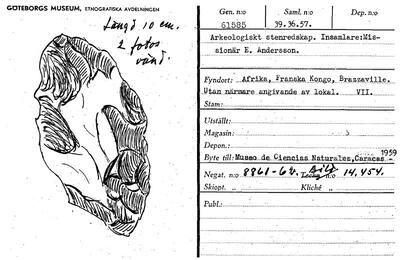 GÖTEBORGS MUSEUM, ETNOGRAFISKA AVDELNINGEN
Längd 10 cm.
2 fotos
vänd.
Gen. n:o Saml. n:o Dep. n:o
61585 39.36.57.
Arkeologiskt stenredskap. Insamlare:Mis-
sionär E. Andersson.
Fyndort: Afrika, Franska Kongo, Brazzaville.
Utan närmare angivande av lokal. VII.
Stam:
Utställt:
Magasin:
Depon.:
1959
Byte till: Museo de Ciencias Naturales, Caracas -
Negat. n:o 8861-62. Bild n:o 14.454.
Skiopt. „ Kliché „
Publ.: